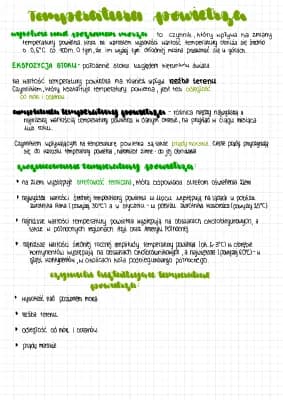 Temperatura powietrza
wysokość nad poziomem morza - to czynnik, który wpływa na zmiany
temperatury powietrza. Wraz ze wzrostem wysokości wartość temperatury obniża się średnio
o 0,6°C co 100m. O tym, że im wyżej tym chłodniej można przekonać się w górach.
EKSPOZYCJA STOKU - położenie stoku względem kierunków świata
na wartość temperatury powietrza ma również wpływ rzeźba terenu.
Czynnikiem, który kształtuje temperaturę powietrza, jest też odległość
od mórz i oceanów
amplituda temperatury powietrza - różnica między najwyższą a
najniższą wartością temperatury powietrza w danym okresie, na przykład w ciągu miesiąca
lub roku.
Czynnikiem wpływającym na temperaturę powietrza są także prądy morskie. Ciepłe prądy przyczyniają
się do wzrostu temperatury powietrza, natomiast zimne - do jej obniżania
temperatury powietrza:
• na Ziemi występuje strefowość termiczna, która odpowiada strefom oświetlenia Ziemi
• najwyższe wartości średniej temperatury powietrza w lipcu występują na lądach w pobliżu
zwrotnika Raka (powyżej 35°C) a w styczniu - w pobliżu zwrotnika Koziorożca (powyżej 25°C)
• najniższe wartości temperatury powietrza występują na obszarach okołobiegunowych, a
także w północnych regionach Azji oraz Ameryki Północnej
• najniższe wartości średniej rocznej amplitudy temperatury powietrza (ok. 2-3°C) w obrębie
kontynentów występują na obszarach okołorównikowych, a najwyższe (powyżej 60°C) - w
głębi kontynentów, w okolicach koła podbiegunowego północnego
czynniki kształtujące temperaturę
powietrza:
• wysokość nad poziomem morza
• rzeźba terenu
• odległość od mórz i oceanów
• prądy morskie